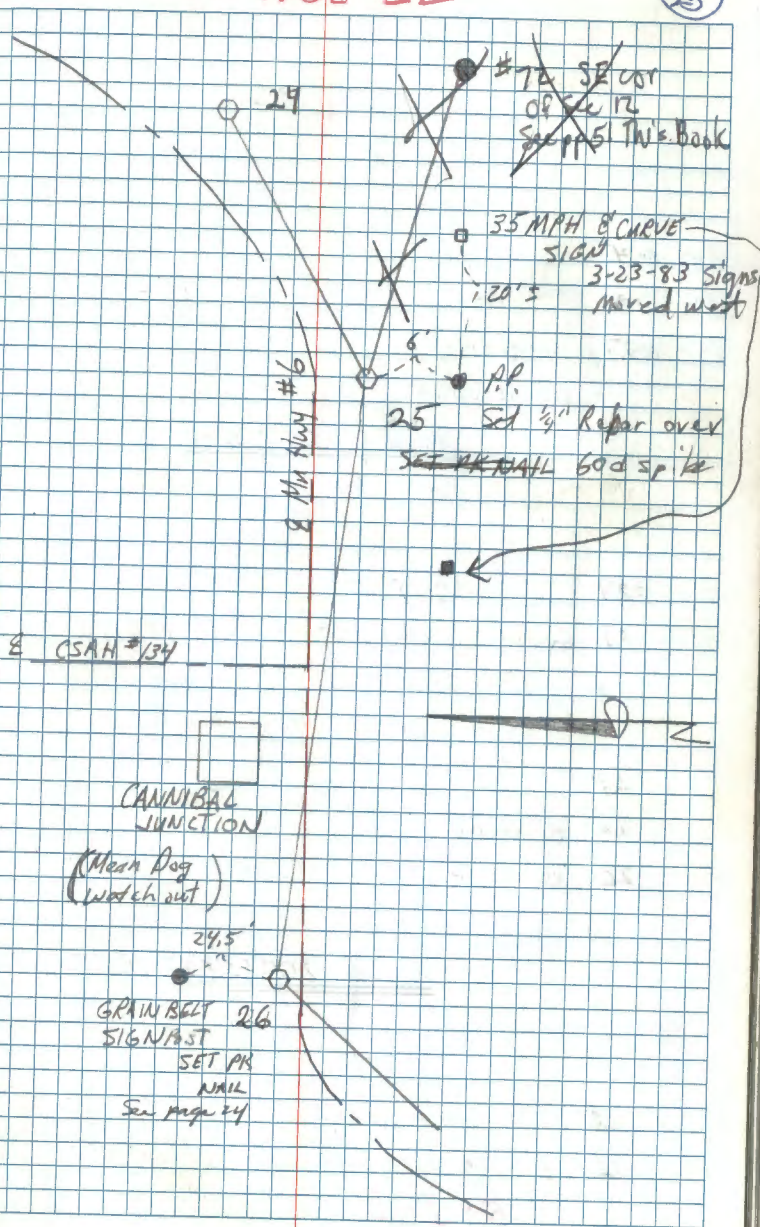 24
#72 SE cor
of Sec 12
See pp 51 This Book
35 MPH & CURVE
SIGN
3-23-83 Signs
Moved west
20' ±
6'
P.P.
25 Set 1/4" Rebar over
SET PK NAIL 60d spike
℄ Mn Hwy #6
℄ CSAH #134
CANNIBAL
JUNCTION
(Mean Dog
watch out)
24.5'
GRAIN BELT 26
SIGN POST
SET PK
NAIL
See page 24